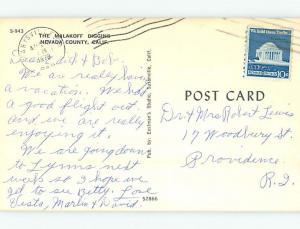 S-943
THE MALAKOFF DIGGINS
NEVADA COUNTY, CALIF.
Dear Dad & Bob.
We are really having
a vacation. We had
a good flight out.
And we are really
enjoying it.
We are going down
to Lynns next
week so I hope we
get to see Betty. Love
Vesta, Marlin & David.
Pub. by: Eastman's Studio, Susanville, Calif.
52866
POST CARD
UNITED STATES 10c
Dr. & Mrs Robert Lewis
17 Woodbury St.
Providence.
R.I.